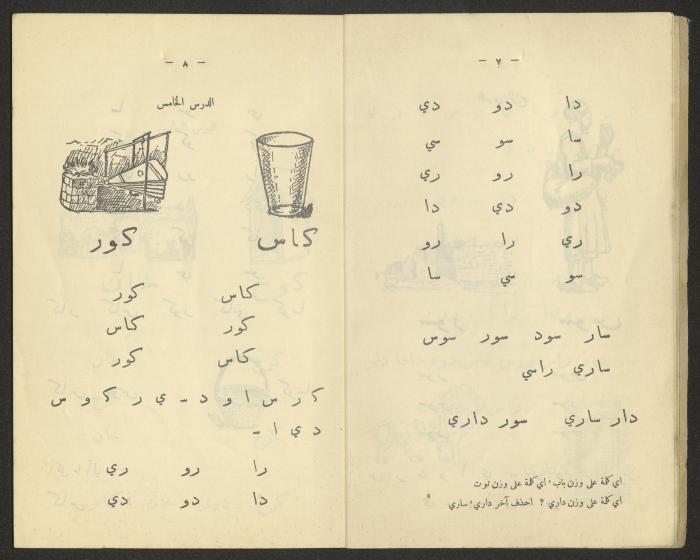 - ٧ -
دا دو دي
سا سو سي
را رو ري
دو دي دا
ري را رو
سو سي سا
سار سود سور سوس
ساري راسي
دار ساري سور داري
اي كلمة على وزن باب ، اي كلمة على وزن توت
اي كلمة على وزن داري ؟ احذف آخر داري ، ساري
- ٨ -
الدرس الخامس
كاس كور
كاس كور
كور كاس
كاس كور
ك ر س ا و د ـ ي ر ك و س
د ي ا ـ
را رو ري
دا دو دي